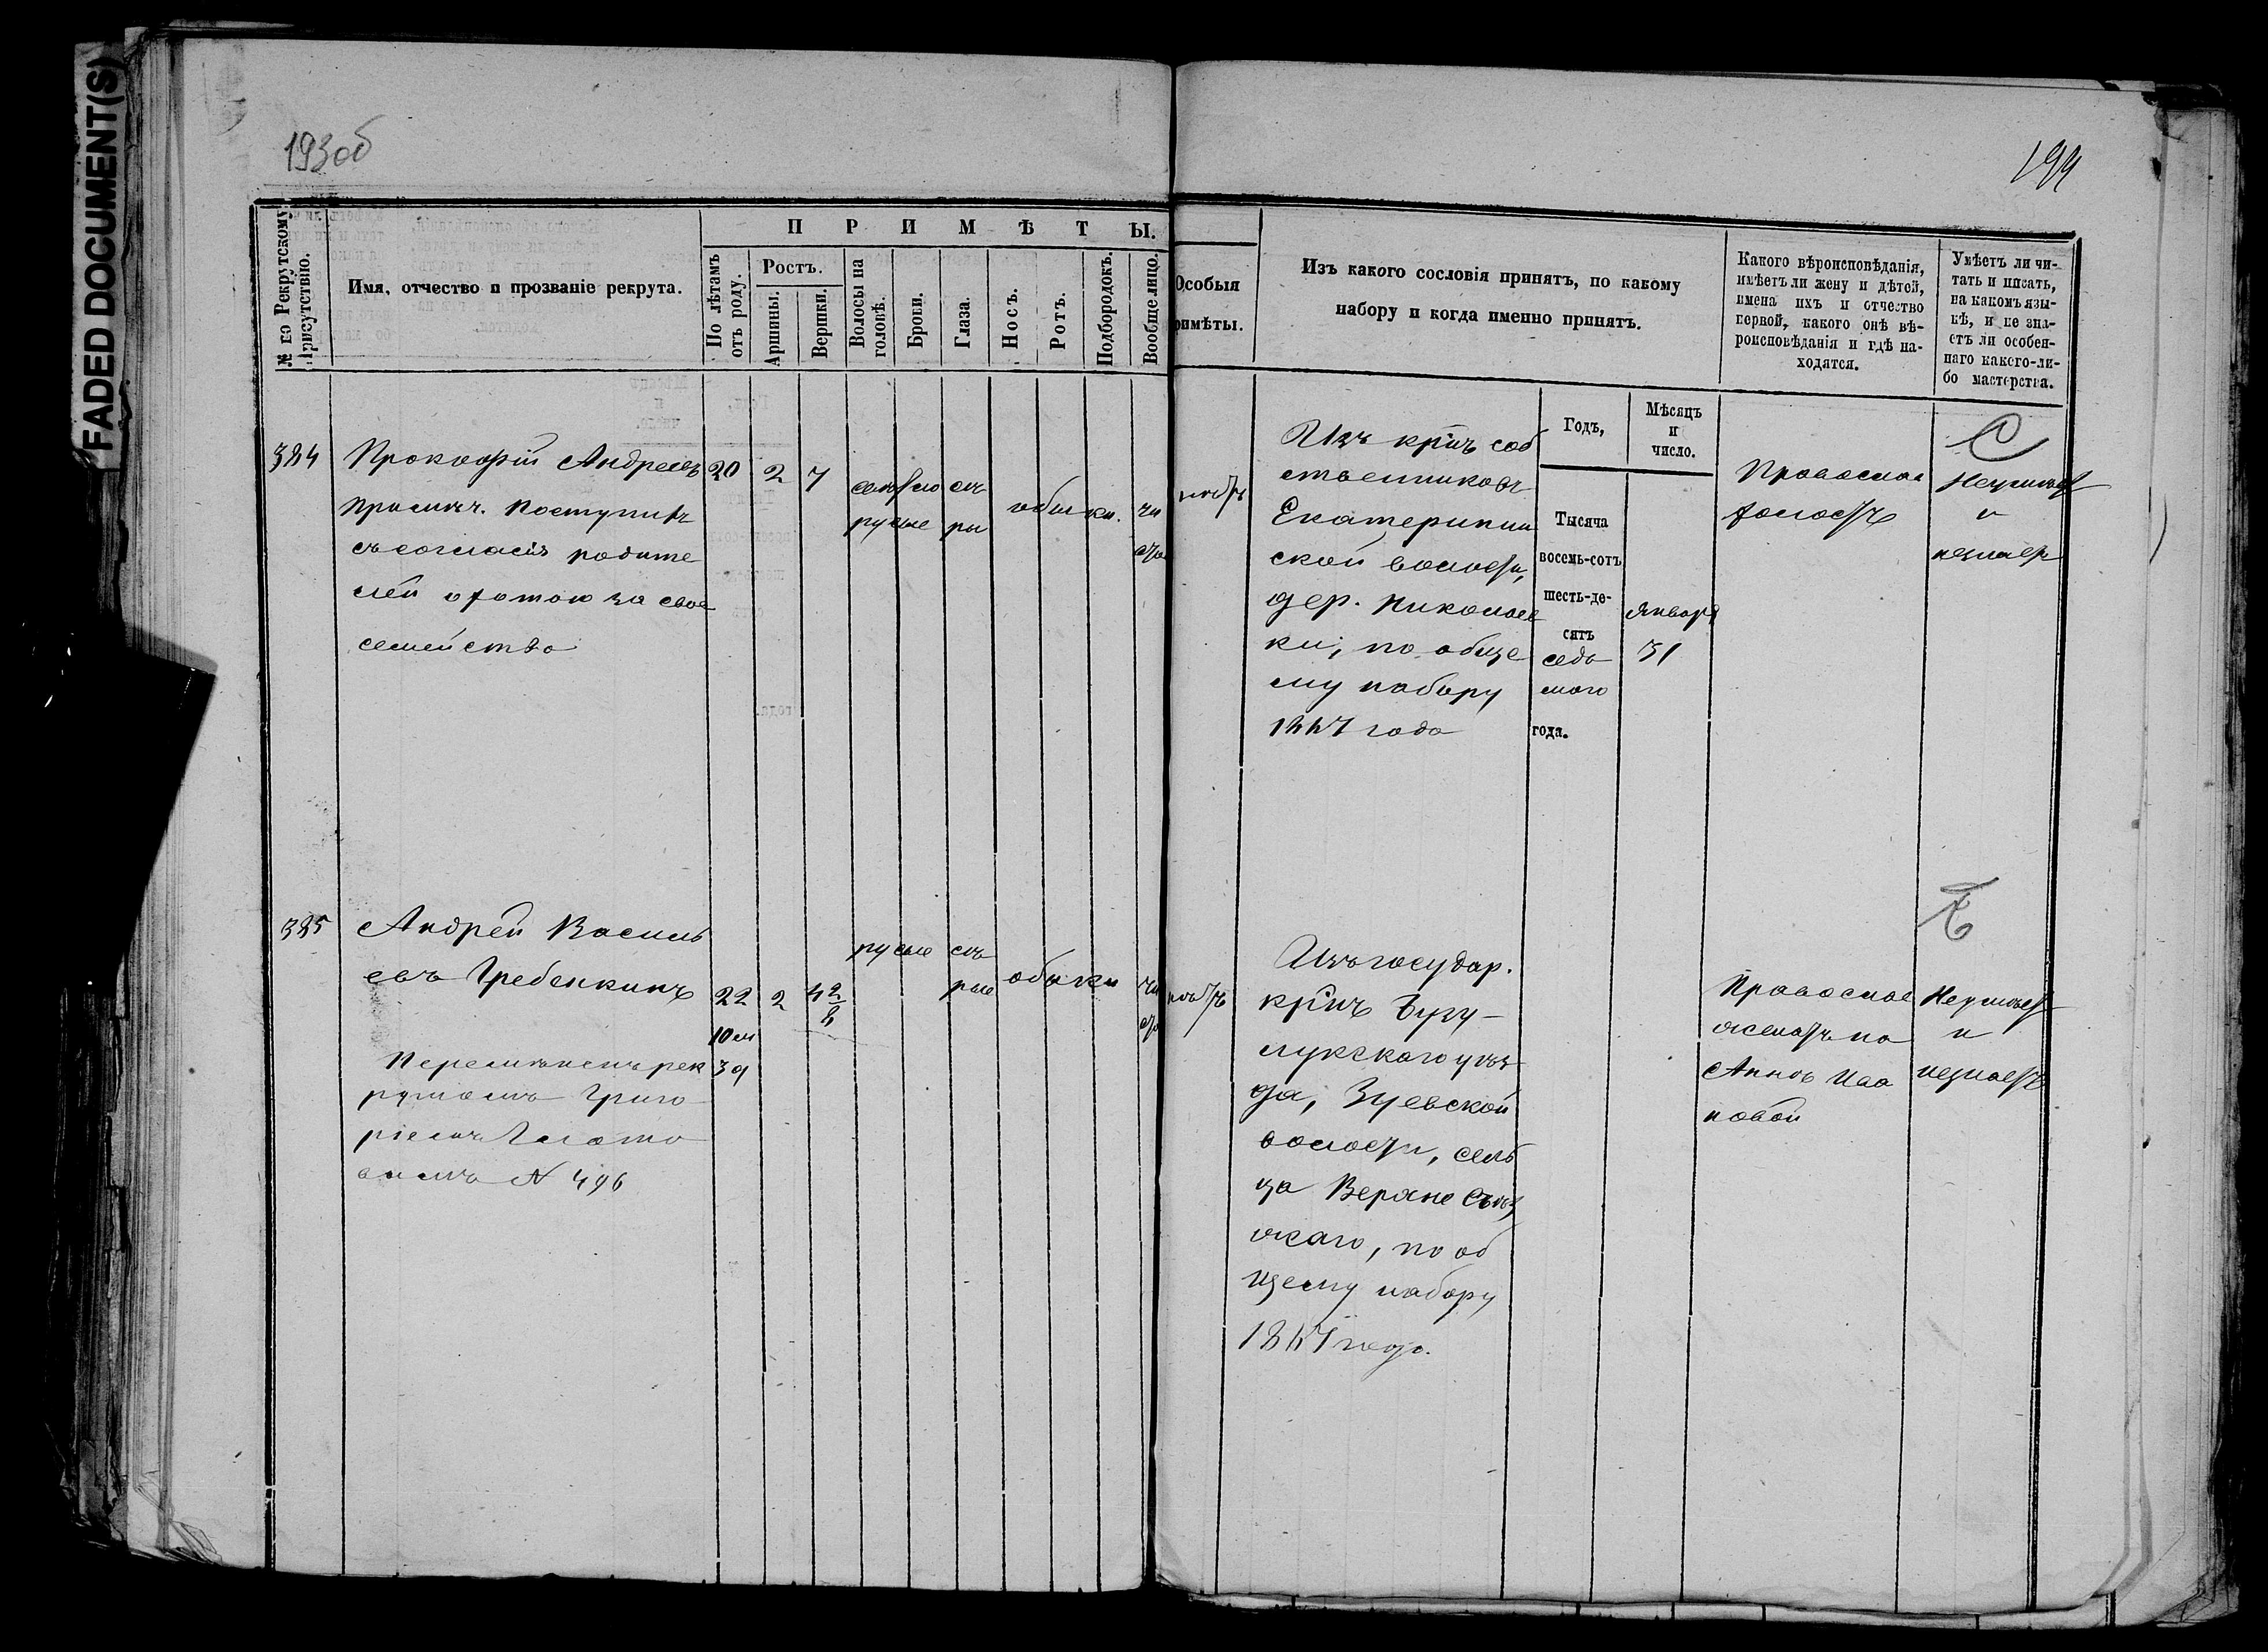 FADED DOCUMENT(S)
193об
194
№ по Рекрутскому
присутствію.
Имя, отчество и прозваніе рекрута.
ПРИМѢТЫ.
По лѣтамъ
отъ роду.
Ростъ.
Аршины.
Вершки.
Волосы на
головѣ.
Брови.
Глаза.
Носъ.
Ротъ.
Подбородокъ.
Вообще лицо.
Особыя
примѣты.
Изъ какого сословія принятъ, по какому
набору и когда именно принятъ.
Какого вѣроисповѣданія,
имѣетъ ли жену и дѣтей,
имена ихъ и отчество
первой, какого онѣ вѣ-
роисповѣданія и гдѣ на-
ходятся.
Умѣетъ ли чи-
тать и писать,
на какомъ язы-
кѣ, и не зна-
етъ ли особен-
наго какого-ли-
бо мастерства.
Годъ,
Мѣсяцъ
и
число.
384
Прокофій Андреевъ
Поступилъ
съ согласія родите
лей охотою за свое
семейство
20
2
7
русые
сѣ
ры
обыкн.
чи
сто
нѣтъ
Изъ крѣнъ соб
ственниковъ
Екатеринин
ской волости,
дер. Николаев
ки, по обще
му набору
1867 года
Тысяча
восемь-сотъ
шесть-де-
сятъ
седь
мого
года.
Января
31
Православ
холостъ
Неумѣет
и
незнает
385
Андрей Василь
евъ Гребенкинъ
22
10 м
39
2
4 2/8
русые
сѣ
рые
обыкн
чи
сто
нѣтъ
Перемѣненъ рек
рутомъ Григо
ріемъ
вымъ N 496
Изъ государ.
крѣнъ Бугу-
русланскаго уѣз
да, Зуевской
волости, сель
ца Верхне Съѣз
жаго, по об
щему набору
1867 года.
Православ
женатъ на
Аннѣ Ива
новой
Неумѣет
и
незнаетъ